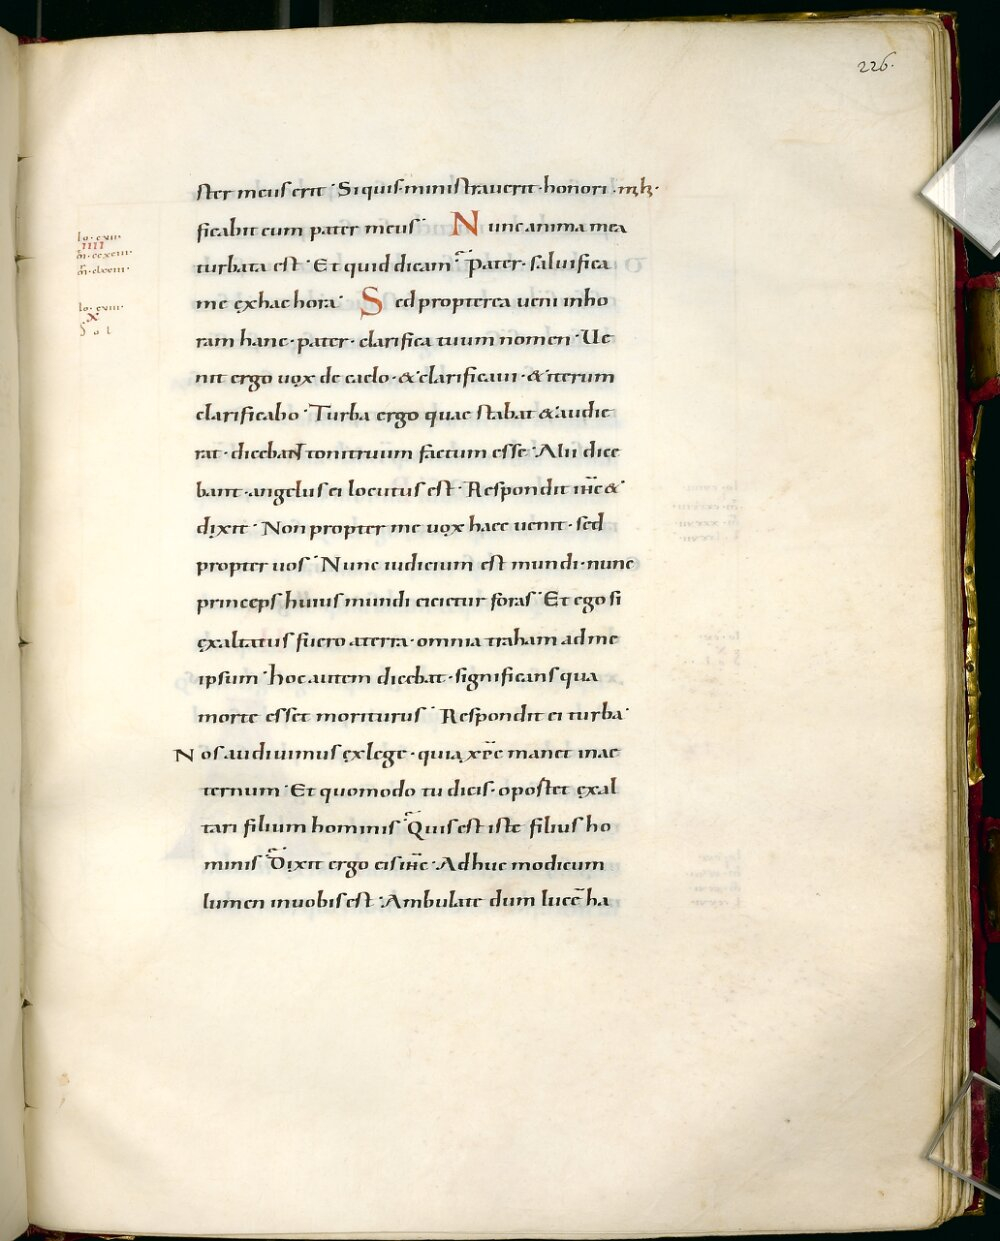 226.
ster meus erit · Siquis·ministrauerit·honori .mih·
ficabit eum pater meus · Nunc anima mea
turbata est · Et quid dicam · Pater· saluifica
me exhac hora · Sed propterea ueni inho
ram hanc· pater· clarifica tuum nomen · Ue
nit ergo uox de caelo·&clarificaui·&iterum
clarificabo · Turba ergo quae stabat &audie
rat· dicebant tonitruum factum esse · Alii dice
bant·angelus ei locutus est · Respondit ihc̄ &
dixit · Non propter me uox haec uenit· sed
propter uos · Nunc iudicium est mundi·nunc
princeps huius mundi eicietur foras · Et ego si
exaltatus fuero aterra· omnia traham adme
ipsum · hoc autem dicebat· significans qua
morte esset moriturus · Respondit ei turba ·
Nos audiuimus exlege· quia xp̄c manet inae
ternum · Et quomodo tu dicis· oportet exal
tari filium hominis · Quis est iste filius ho
minis · Dixit ergo eis ihc̄ · Adhuc modicum
lumen inuobis est · Ambulate dum lucē ha
Io· cvii·
IIII
m̄· ccxciii·
io· cviii·
X
Sol